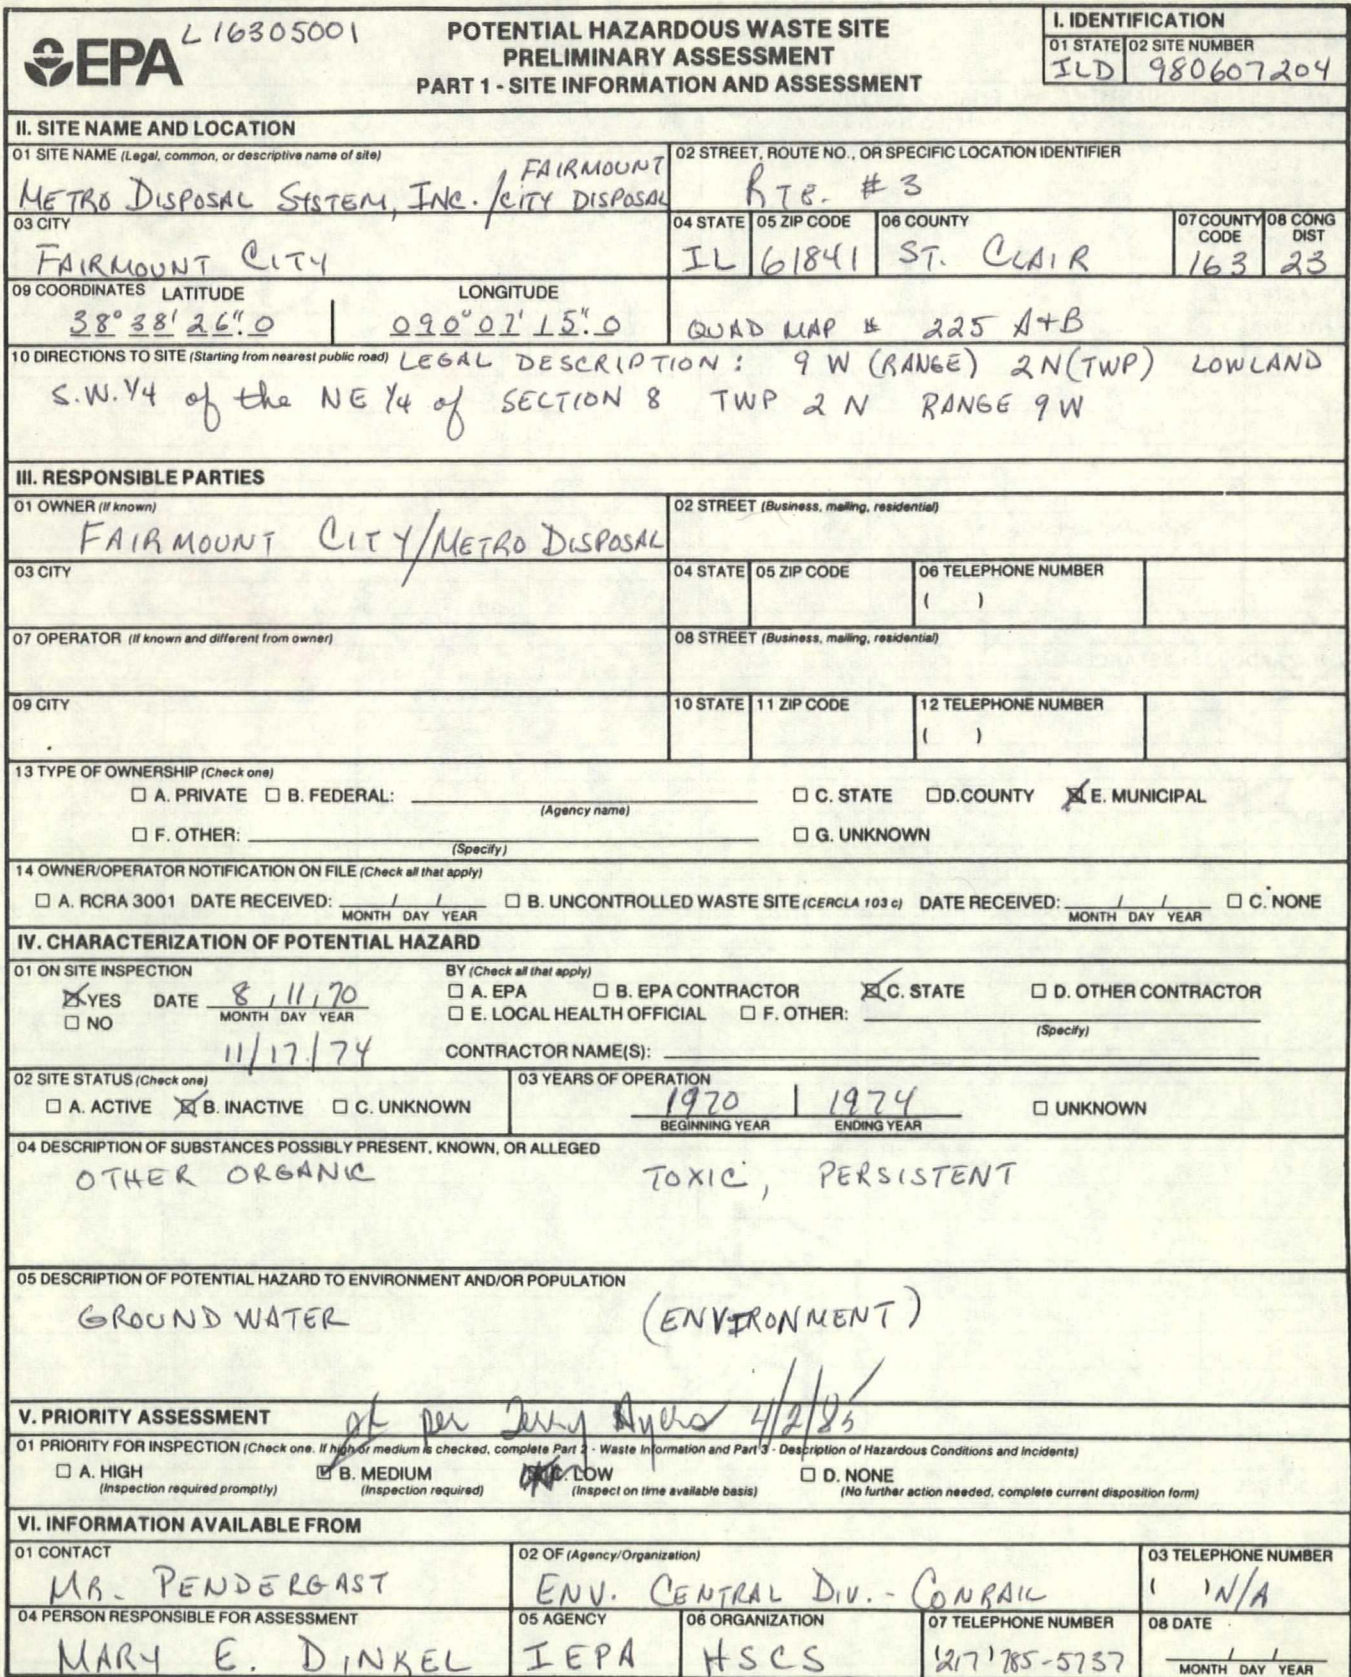 EPA L16305001
POTENTIAL HAZARDOUS WASTE SITE
PRELIMINARY ASSESSMENT
PART 1 - SITE INFORMATION AND ASSESSMENT
I. IDENTIFICATION
01 STATE 02 SITE NUMBER
ILD 980607204
II. SITE NAME AND LOCATION
01 SITE NAME (Legal, common, or descriptive name of site)
METRO DISPOSAL SYSTEM, INC. / FAIRMOUNT CITY DISPOSAL
02 STREET, ROUTE NO., OR SPECIFIC LOCATION IDENTIFIER
RTE. # 3
03 CITY
FAIRMOUNT CITY
04 STATE 05 ZIP CODE 06 COUNTY 07 COUNTY CODE 08 CONG DIST
IL 61841 ST. CLAIR 163 23
09 COORDINATES LATITUDE LONGITUDE
38° 38' 26".0 090° 07' 15".0 QUAD MAP # 225 A+B
10 DIRECTIONS TO SITE (Starting from nearest public road) LEGAL DESCRIPTION: 9 W (RANGE) 2N (TWP) LOWLAND
S.W. 1/4 of the NE 1/4 of SECTION 8 TWP 2 N RANGE 9 W
III. RESPONSIBLE PARTIES
01 OWNER (If known)
FAIRMOUNT CITY/METRO DISPOSAL
02 STREET (Business, mailing, residential)
03 CITY 04 STATE 05 ZIP CODE 06 TELEPHONE NUMBER
( )
07 OPERATOR (If known and different from owner) 08 STREET (Business, mailing, residential)
09 CITY 10 STATE 11 ZIP CODE 12 TELEPHONE NUMBER
( )
13 TYPE OF OWNERSHIP (Check one)
☐ A. PRIVATE ☐ B. FEDERAL: (Agency name) ☐ C. STATE ☐ D. COUNTY ☒ E. MUNICIPAL
☐ F. OTHER: (Specify) ☐ G. UNKNOWN
14 OWNER/OPERATOR NOTIFICATION ON FILE (Check all that apply)
☐ A. RCRA 3001 DATE RECEIVED: / / MONTH DAY YEAR ☐ B. UNCONTROLLED WASTE SITE (CERCLA 103 c) DATE RECEIVED: / / MONTH DAY YEAR ☐ C. NONE
IV. CHARACTERIZATION OF POTENTIAL HAZARD
01 ON SITE INSPECTION
☒ YES DATE 8/11/70
☐ NO MONTH DAY YEAR
11/17/74
BY (Check all that apply)
☐ A. EPA ☐ B. EPA CONTRACTOR ☒ C. STATE ☐ D. OTHER CONTRACTOR
☐ E. LOCAL HEALTH OFFICIAL ☐ F. OTHER: (Specify)
CONTRACTOR NAME(S):
02 SITE STATUS (Check one)
☐ A. ACTIVE ☒ B. INACTIVE ☐ C. UNKNOWN
03 YEARS OF OPERATION
1970 | 1974 ☐ UNKNOWN
BEGINNING YEAR ENDING YEAR
04 DESCRIPTION OF SUBSTANCES POSSIBLY PRESENT, KNOWN, OR ALLEGED
OTHER ORGANIC TOXIC, PERSISTENT
05 DESCRIPTION OF POTENTIAL HAZARD TO ENVIRONMENT AND/OR POPULATION
GROUND WATER (ENVIRONMENT)
V. PRIORITY ASSESSMENT per Jerry Ayers 4/2/85
01 PRIORITY FOR INSPECTION (Check one. If high or medium is checked, complete Part 2 - Waste Information and Part 3 - Description of Hazardous Conditions and Incidents)
☐ A. HIGH ☑ B. MEDIUM ☒ C. LOW ☐ D. NONE
(Inspection required promptly) (Inspection required) (Inspect on time available basis) (No further action needed, complete current disposition form)
VI. INFORMATION AVAILABLE FROM
01 CONTACT
MR. PENDERGAST
02 OF (Agency/Organization)
ENV. CENTRAL DIV. - CONRAIL
03 TELEPHONE NUMBER
( ) N/A
04 PERSON RESPONSIBLE FOR ASSESSMENT
MARY E. DINKEL
05 AGENCY
IEPA
06 ORGANIZATION
HSCS
07 TELEPHONE NUMBER
(217) 785-5737
08 DATE
/ /
MONTH DAY YEAR